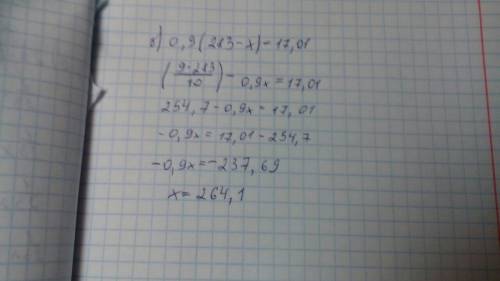 б) 0,9(283-x)=17,01
(9·283/10) - 0,9x=17,01
254,7-0,9x=17,01
-0,9x=17,01-254,7
-0,9x=-237,69
x=264,1